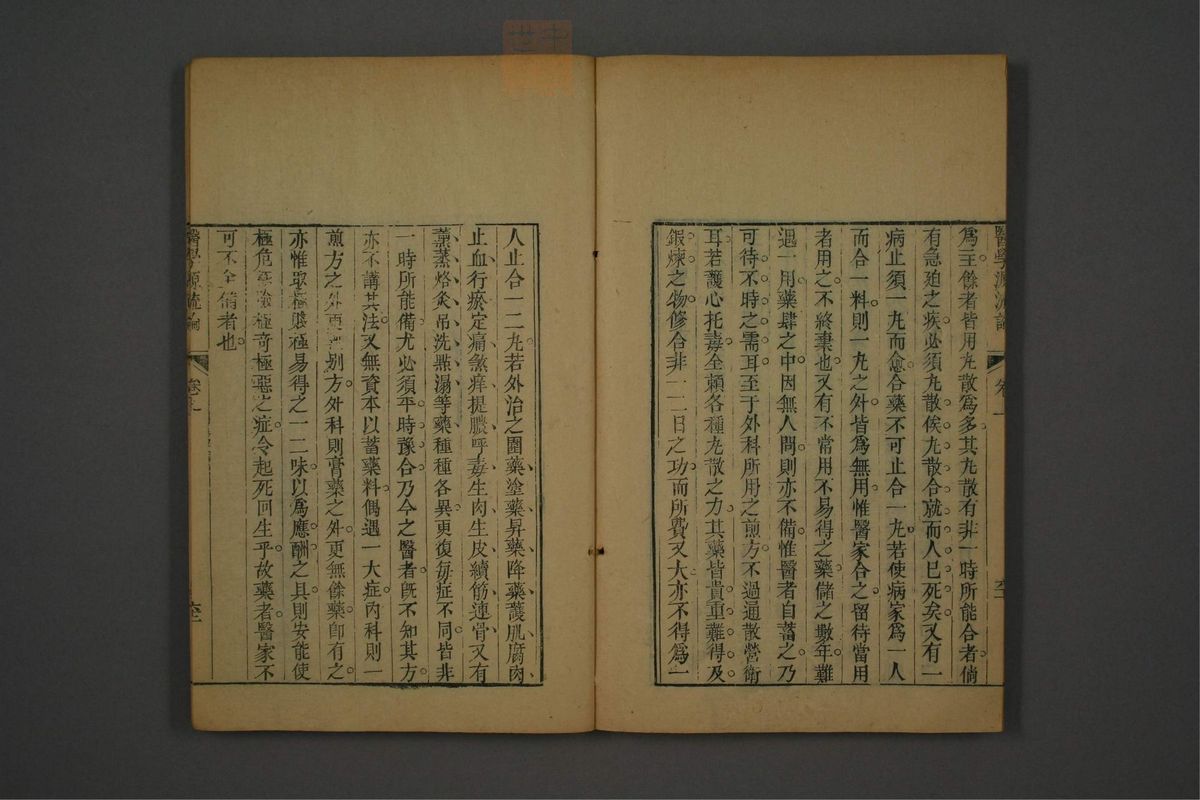 醫學源流論
卷上
六二
爲主餘者皆用丸散爲多其丸散有非一時所能合者倘
有急廹之疾必須丸散俟丸散合就而人已死矣又有一
病止須一丸而愈合藥不可止合一丸若使病家爲一人
而合一料則一丸之外皆爲無用惟醫家合之留待當用
者用之不終棄也又有不常用不易得之藥儲之數年難
遇一用藥肆之中因無人問則亦不備惟醫者自蓄之乃
可待不時之需耳至于外科所用之煎方不過通散營衛
耳若護心托毒全賴各種丸散之力其藥皆貴重難得及
鍜煉之物修合非一二日之功而所費又大亦不得爲一
人止合一二丸若外治之圍藥塗藥昇藥降藥護肌腐肉
止血行瘀定痛煞痒提膿呼毒生肉生皮續筋連骨又有
薰蒸烙灸吊洗點溻等藥種種各異更復每症不同皆非
一時所能備尤必須平時豫合乃今之醫者旣不知其方
亦不講其法又無資本以蓄藥料偶遇一大症內科則一
煎方之外更無別方外科則膏藥之外更無餘藥卽有之
亦惟取極賤極易得之一二味以爲應酬之具則安能使
極危極險極奇極惡之症令起死回生乎故藥者醫家不
可不全備者也
醫學源流論
卷上
六二